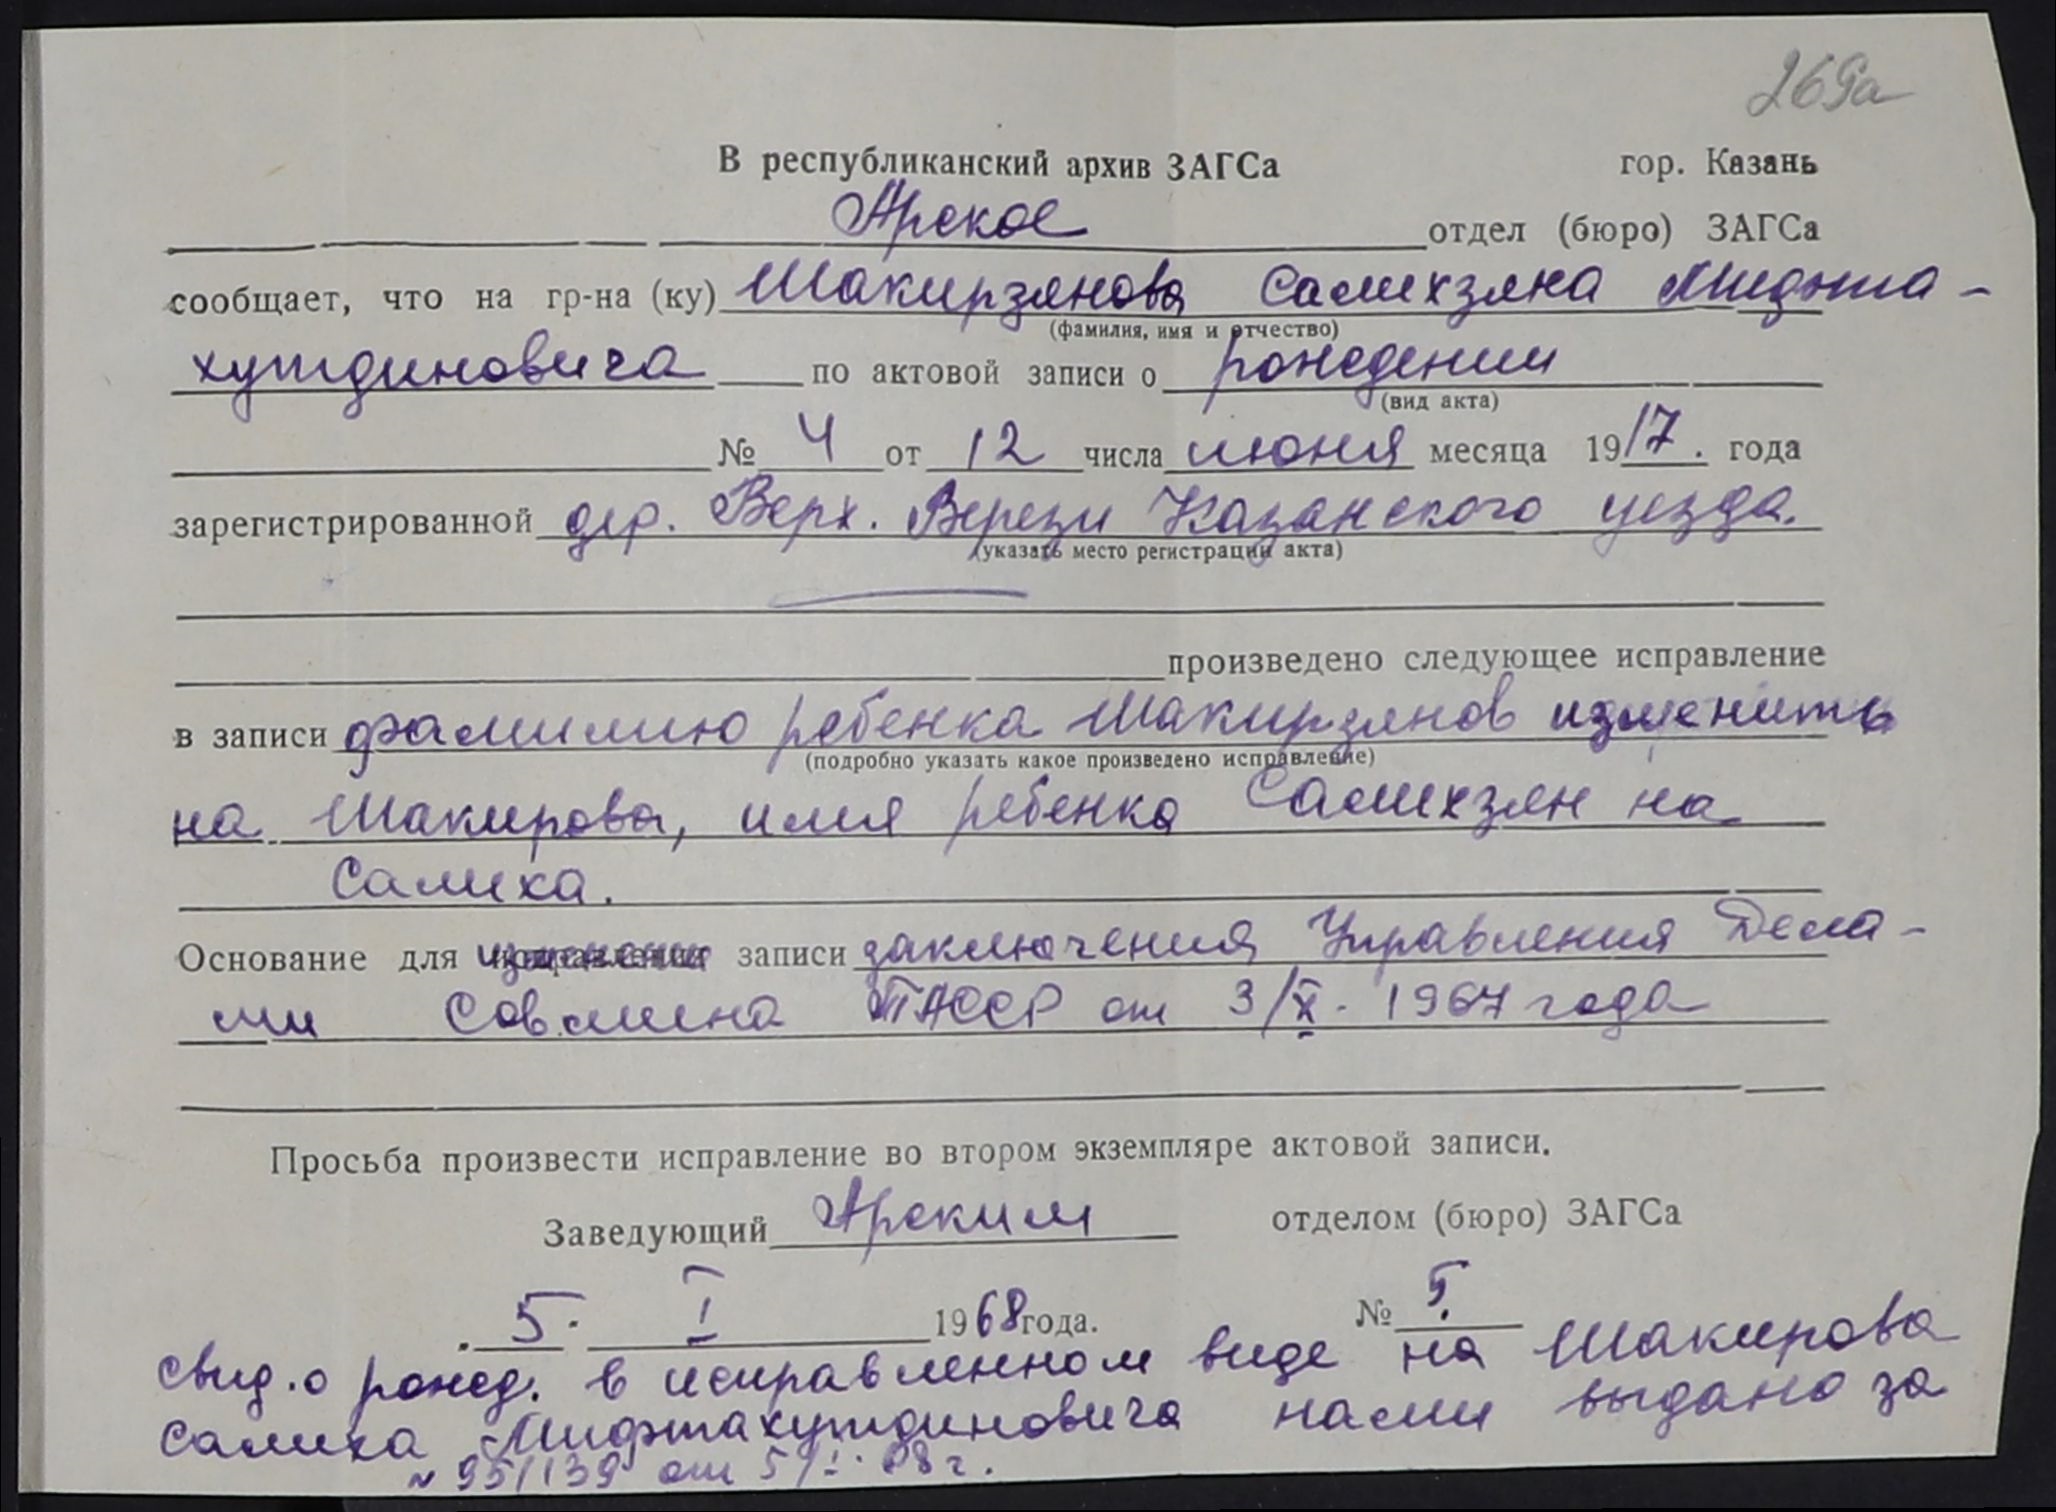 269а
В республиканский архив ЗАГСа гор. Казань
Арское отдел (бюро) ЗАГСа
сообщает, что на гр-на (ку) Шакирзянова Самихзяна Мифта-
(фамилия, имя и отчество)
хутдиновича по актовой записи о рождении
(вид акта)
№ 4 от 12 числа июня месяца 1917. года
зарегистрированной дер. Верх. Верези Казанского уезда.
(указать место регистрации акта)
произведено следующее исправление
в записи фамилию ребенка Шакирзянов изменить
(подробно указать какое произведено исправление)
на Шакирова, имя ребенка Самихзян на
Самиха.
Основание для записи заключения Управления Дела-
ми Совмина ТАССР от 3/X- 1967 года
Просьба произвести исправление во втором экземпляре актовой записи.
Заведующий Арским отделом (бюро) ЗАГСа
5. I 1968 года. № 5.
свид. о рожд. в исправленном виде на Шакирова
Самиха Мифтахутдиновича нами выдано за
№ 951139 от 5/I. 68 г.